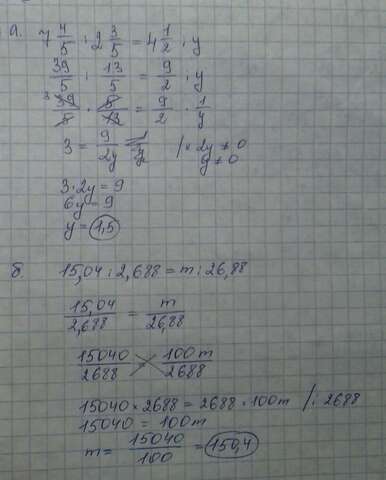 а. 7 4/5 : 2 3/5 = 4 1/2 : y
39/5 : 13/5 = 9/2 : y
39/5 · 5/13 = 9/2 · 1/y
3 = 9/2y /× 2y ≠ 0
y ≠ 0
3·2y = 9
6y = 9
y = 1,5
б. 15,04 : 2,688 = m : 26,88
15,04/2,688 = m/26,88
15040/2688 = 100m/2688
15040 × 2688 = 2688 × 100m /: 2688
15040 = 100m
m = 15040/100 = 150,4